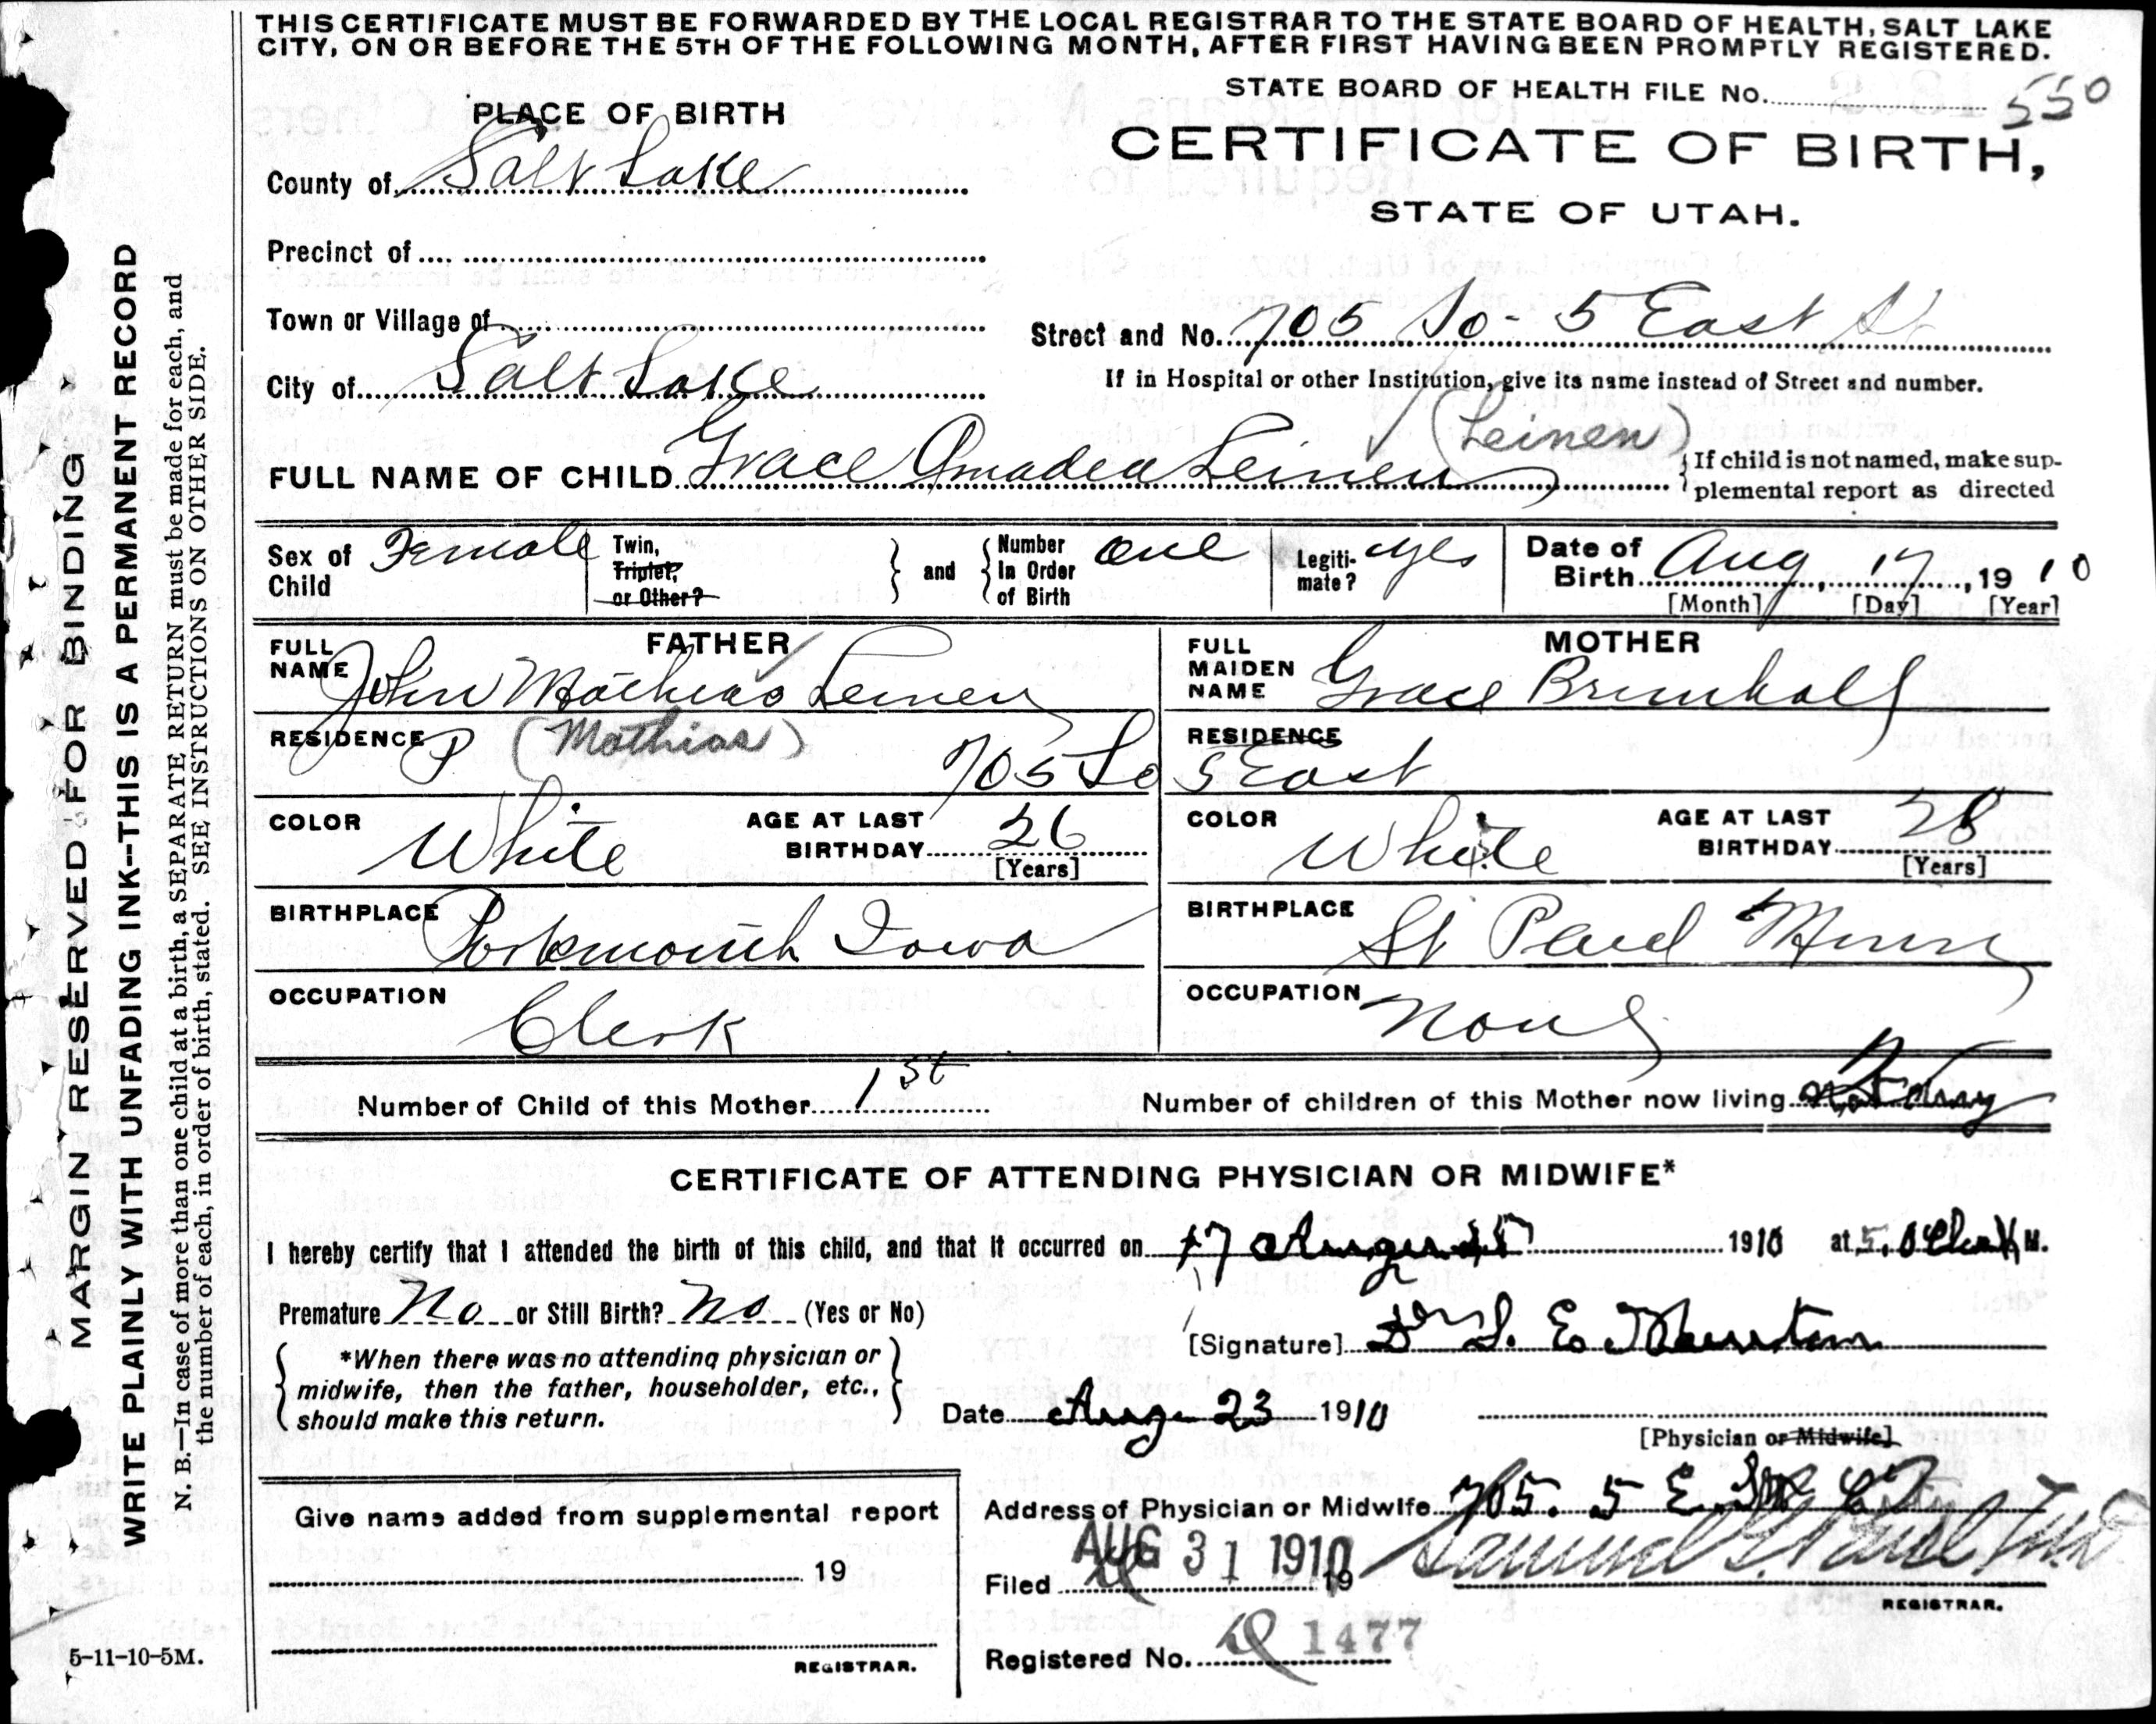 THIS CERTIFICATE MUST BE FORWARDED BY THE LOCAL REGISTRAR TO THE STATE BOARD OF HEALTH, SALT LAKE
CITY, ON OR BEFORE THE 5TH OF THE FOLLOWING MONTH, AFTER FIRST HAVING BEEN PROMPTLY REGISTERED.
STATE BOARD OF HEALTH FILE No. 550
PLACE OF BIRTH
CERTIFICATE OF BIRTH,
STATE OF UTAH.
County of Salt Lake
Precinct of
Town or Village of
Street and No. 705 So - 5 East St
City of Salt Lake
If in Hospital or other Institution, give its name instead of Street and number.
(Leinen)
FULL NAME OF CHILD Grace Amadea Leinen
If child is not named, make sup-
plemental report as directed
Sex of Child Female
Twin, Triplet, or Other?
and
Number In Order of Birth one
Legiti-mate? yes
Date of Birth Aug, 17, 1910
[Month] [Day] [Year]
FATHER
FULL NAME John Mathias Leinen
(Mathias)
MOTHER
FULL MAIDEN NAME Grace Brimhall
RESIDENCE 705 So
RESIDENCE 5 East
COLOR White
AGE AT LAST BIRTHDAY 26
[Years]
COLOR White
AGE AT LAST BIRTHDAY 28
[Years]
BIRTHPLACE Portsmouth Iowa
BIRTHPLACE St Paul Minn
OCCUPATION Clerk
OCCUPATION None
Number of Child of this Mother 1st
Number of children of this Mother now living
CERTIFICATE OF ATTENDING PHYSICIAN OR MIDWIFE*
I hereby certify that I attended the birth of this child, and that it occurred on 17 August 1910 at 5. O Clock M.
Premature No or Still Birth? No (Yes or No)
[Signature] Dr S. E.
*When there was no attending physician or
midwife, then the father, householder, etc.,
should make this return.
Date Aug - 23 1910
[Physician or Midwife]
Address of Physician or Midwife 705. 5 E.
Give name added from supplemental report
19
REGISTRAR.
Filed AUG 31 1910 19
Samuel G. Paul
REGISTRAR.
Registered No. 1477
5-11-10-5M.
MARGIN RESERVED FOR BINDING
WRITE PLAINLY WITH UNFADING INK--THIS IS A PERMANENT RECORD
N. B.—In case of more than one child at a birth, a SEPARATE RETURN must be made for each, and
the number of each, in order of birth, stated. SEE INSTRUCTIONS ON OTHER SIDE.